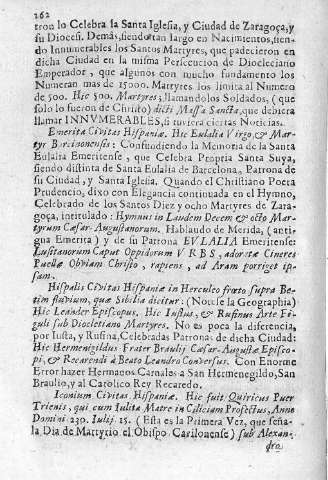 262
tron lo Celebra la Santa Iglesia, y Ciudad de Zaragoça, y
su Diocesi. Demàs, siendo tan largo en Nacimientos, sien-
do Innumerables los Santos Martyres, que padecieron en
dicha Ciudad en la misma Persecucion de Diocleciano
Emperador, que algunos con mucho fundamento los
Numeran mas de 15000. Martyres los limita al Numero
de 500. Hic 500. Martyres, llamandolos Soldados, (que
solo lo fueron de Christo) dicti Massa Sancta, que debiera
llamar INNVMERABLES, si tuviera ciertas Noticias.
Emerita Civitas Hispaniæ. Hic Eulalia Virgo, & Mar-
tyr Barcinonensis: Confundiendo la Memoria de la Santa
Eulalia Emeritense, que Celebra Propria Santa Suya,
siendo distinta de Santa Eulalia de Barcelona, Patrona de
su Ciudad, y Santa Iglesia. Quando el Christiano Poeta
Prudencio, dixo con Elegancia continuada en el Hymno,
Celebrado de los Santos Diez y ocho Martyres de Zara-
goça, intitulado: Hymnus in Laudem Decem & octo Mar-
tyrum Cæsar-Augustanorum. Hablando de Merida, (anti-
gua Emerita) y de su Patrona EVLALIA Emeritense:
Lusitanorum Caput Oppidorum VRBS, adoratæ Cineres
Puellæ Obviam Christo, rapiens, ad Aram porriget ip-
sam.
Hispalis Civitas Hispaniæ in Herculeo freto supra Be-
tim fluvium, quæ Sibilia dicitur: (Notese la Geographia)
Hic Leander Episcopus. Hic Iustus, & Rufinus Arte Fi-
guli sub Diocletiano Martyres. No es poca la diferencia,
por Iusta, y Rufina, Celebradas Patronas de dicha Ciudad:
Hic Hermenigildus Frater Braulij Cæsar-Augustæ Episco-
pi, & Recaredi a Beato Leandro Conversus. Con Enorme
Error hazer Hermanos Carnales a San Hermenegildo, San
Braulio, y al Catolico Rey Recaredo.
Iconium Civitas Hispaniæ. Hic fuit Quiricus Puer
Triennis, qui cum Iulita Matre in Ciliciam Profectus, Anno
Domini 230. Iulij. 15. (Esta es la Primera Vez, que seña-
la Dia de Martyrio el Obispo Cavilonense) sub Alexan-
dro